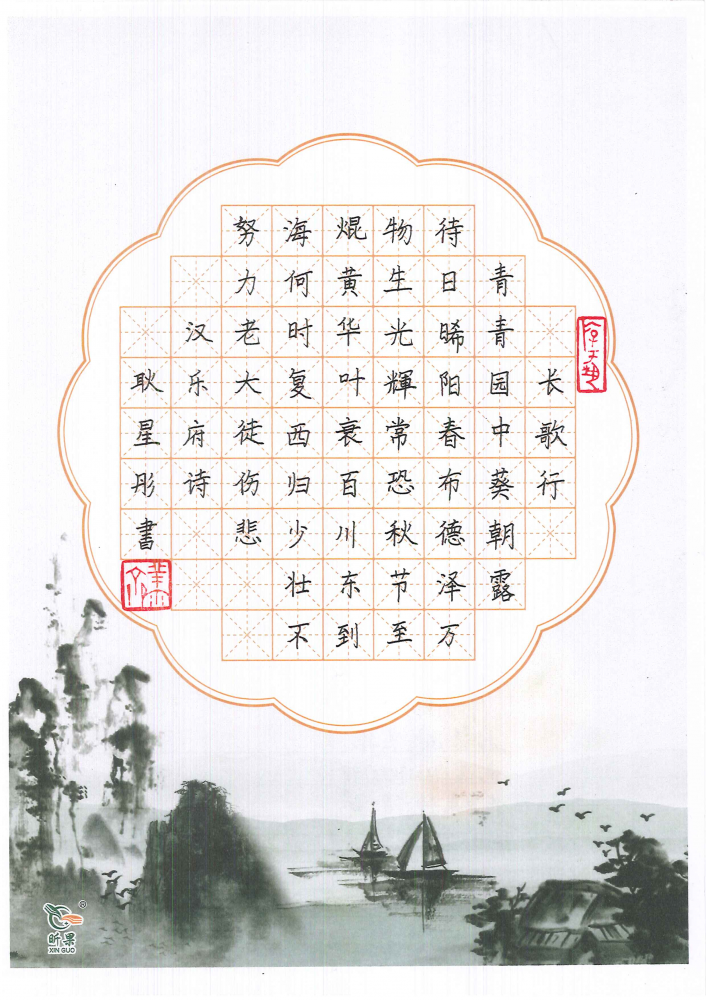 长歌行
青青园中葵朝露
待日晞阳春布德泽万
物生光輝常恐秋节至
焜黄华叶衰百川东到
海何时复西归少壮不
努力老大徒伤悲
汉乐府诗
耿星彤書
昕果
XIN GUO